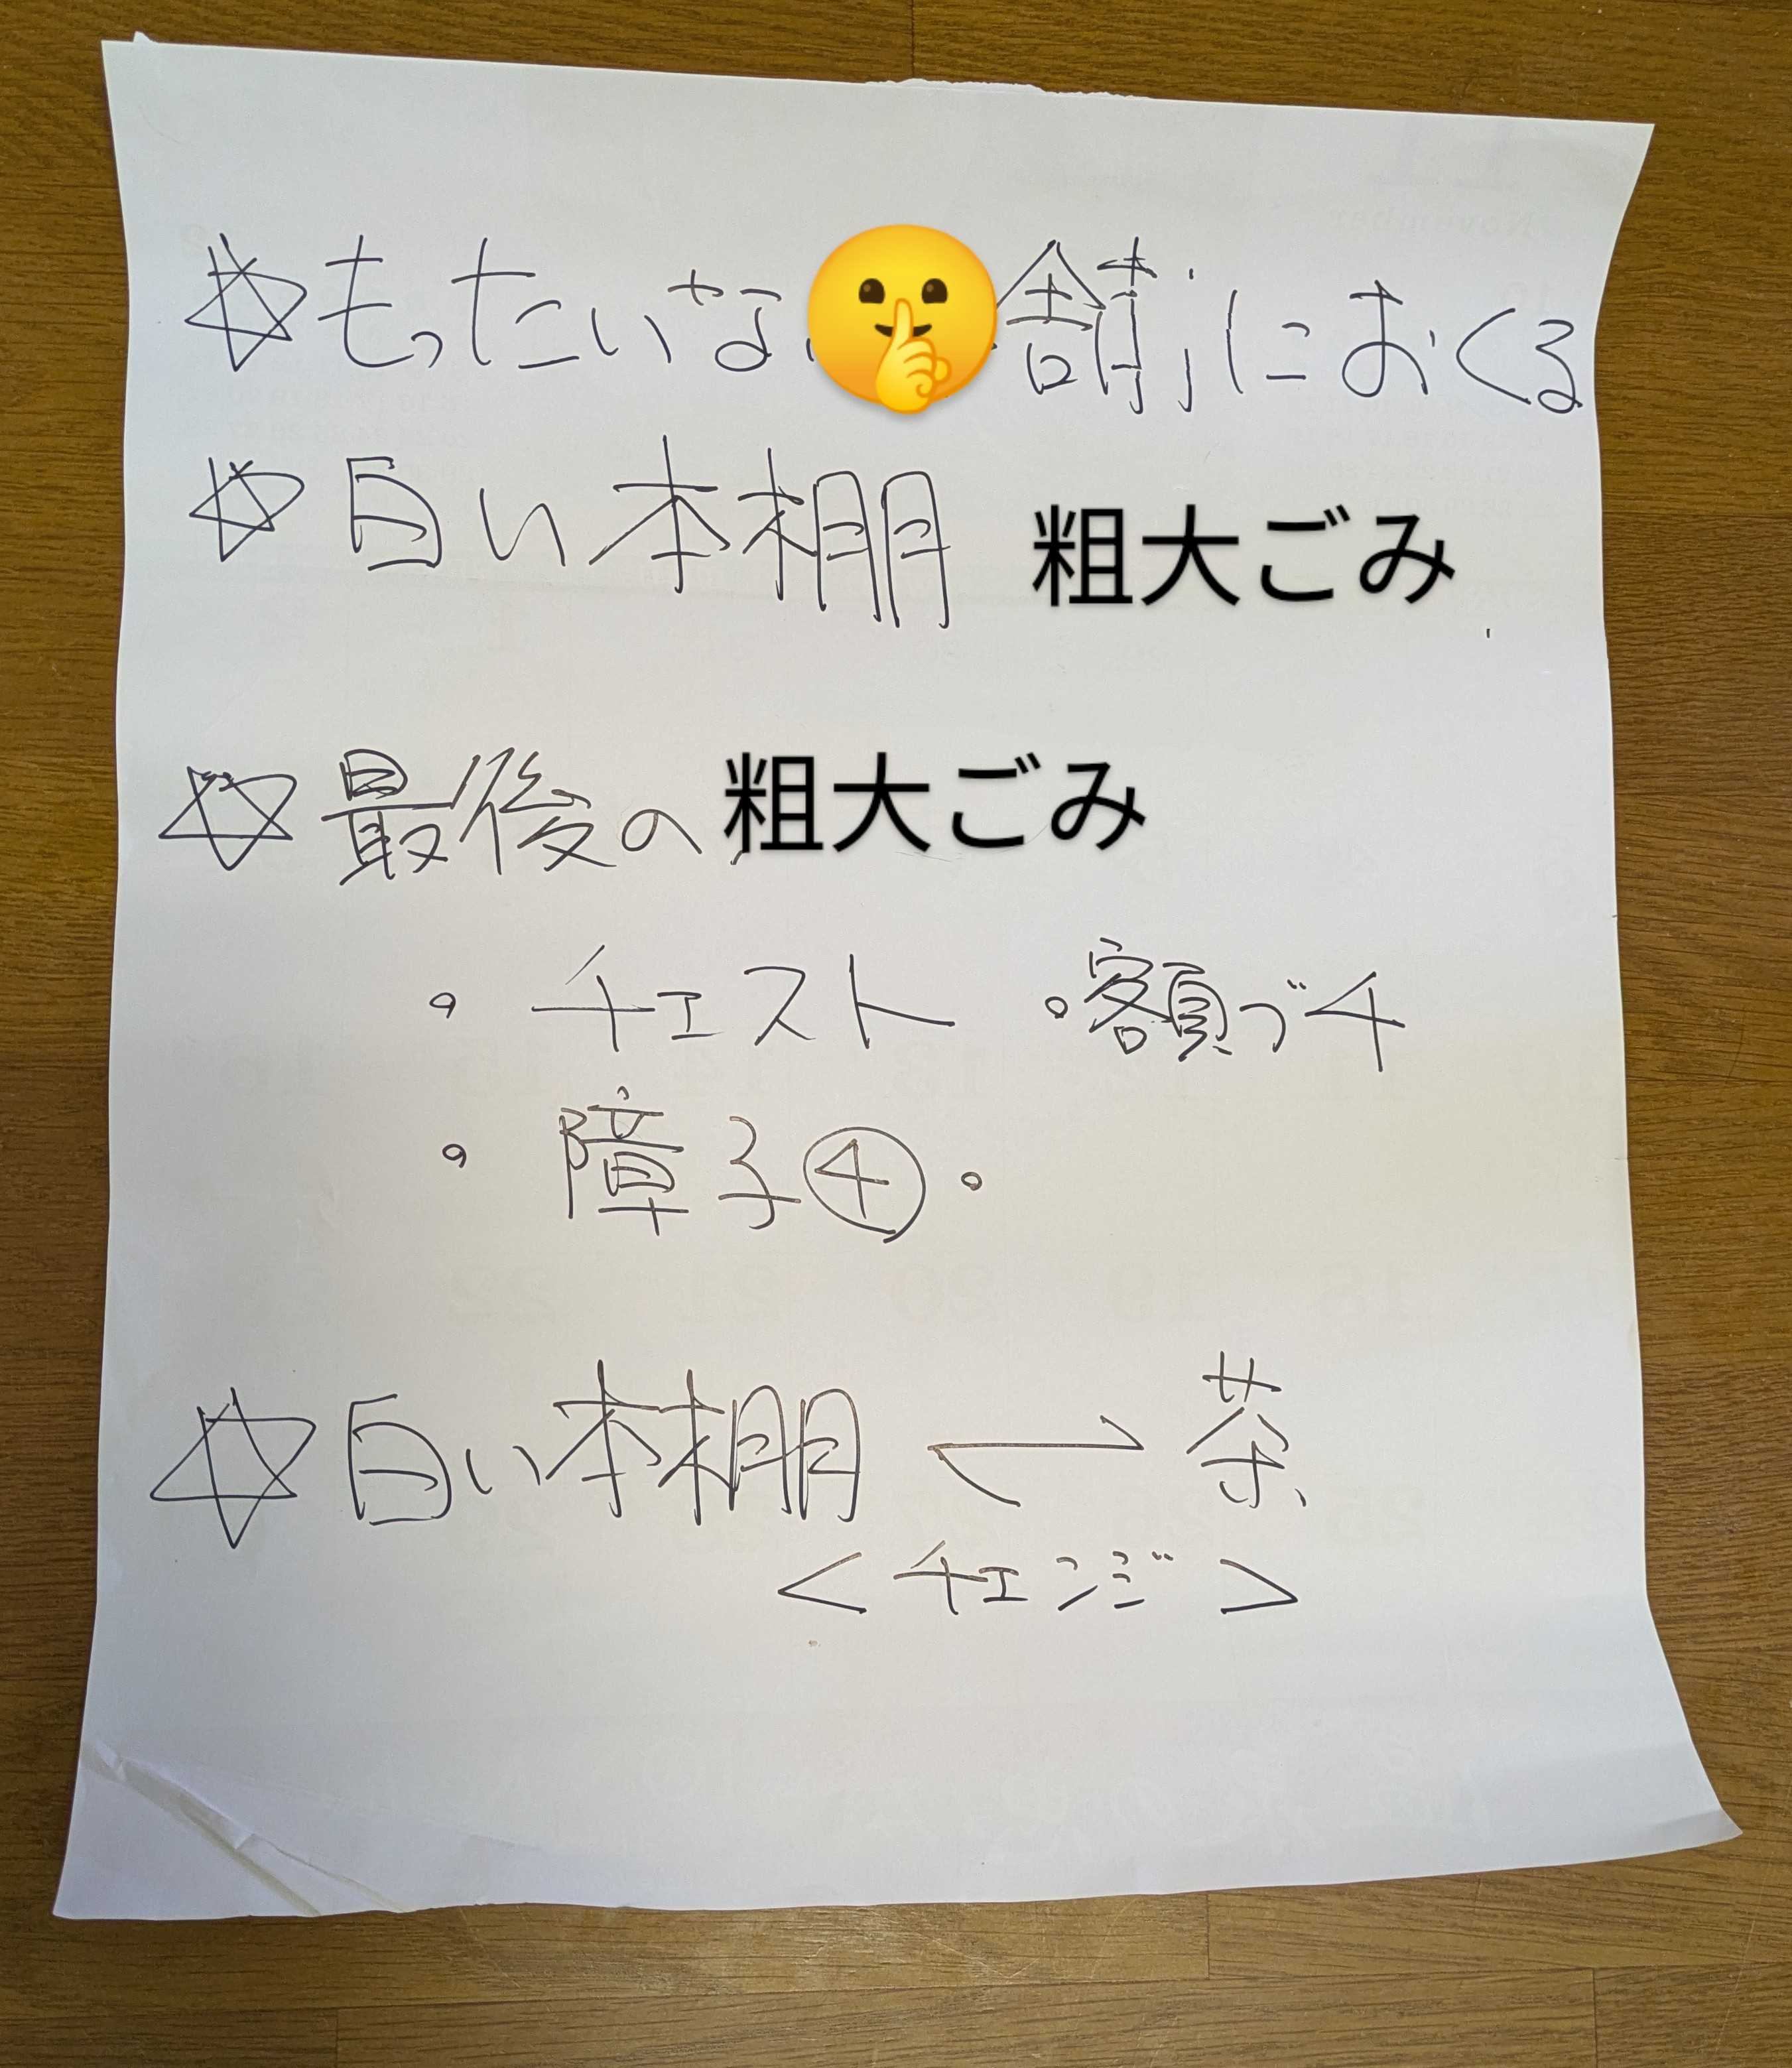 ☆もったいな🤫舗におくる
☆白い本棚 粗大ごみ
☆最後の粗大ごみ
・チェスト ・額ブチ
・障子④・
☆白い本棚 ⇌ 茶
<チェンジ>